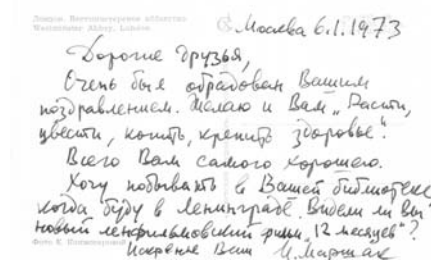 Лондон. Вестминстерское аббатство
Westminster Abbey, London
Москва 6.1.1973
Дорогие друзья,
Очень был обрадован Вашим
поздравлением. Желаю и Вам „Расти,
цвести, копить, крепить здоровье".
Всего Вам самого хорошего.
Хочу побывать в Вашей библиотеке
когда буду в Ленинграде. Видели ли Вы
новый ленфильмовский фильм „12 месяцев"?
Искренне Ваш И. Маршак
Фото